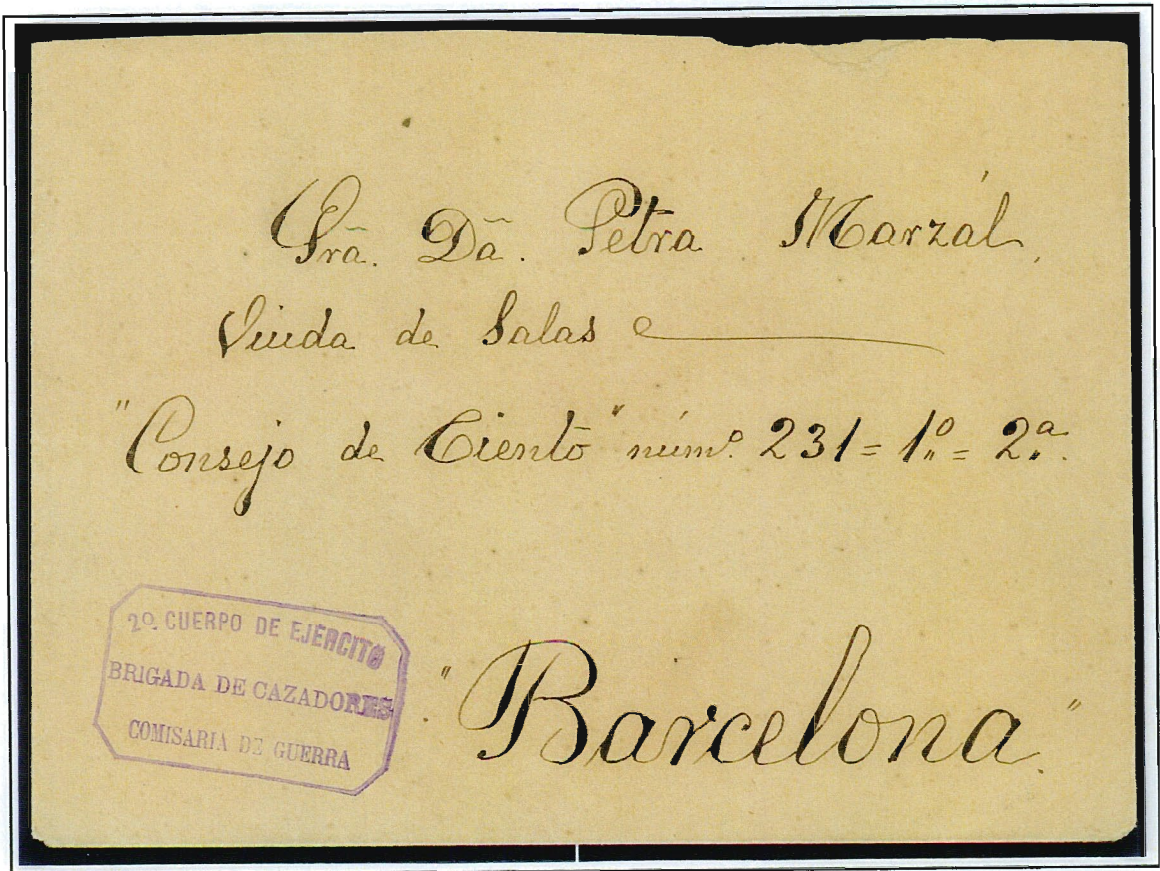 Srã. Dã. Petra Marzál,
Viuda de Salas
"Consejo de Ciento" núm.º 231 = 1º = 2ª.
2º. CUERPO DE EJÉRCITO
BRIGADA DE CAZADORES
COMISARIA DE GUERRA
"Barcelona".